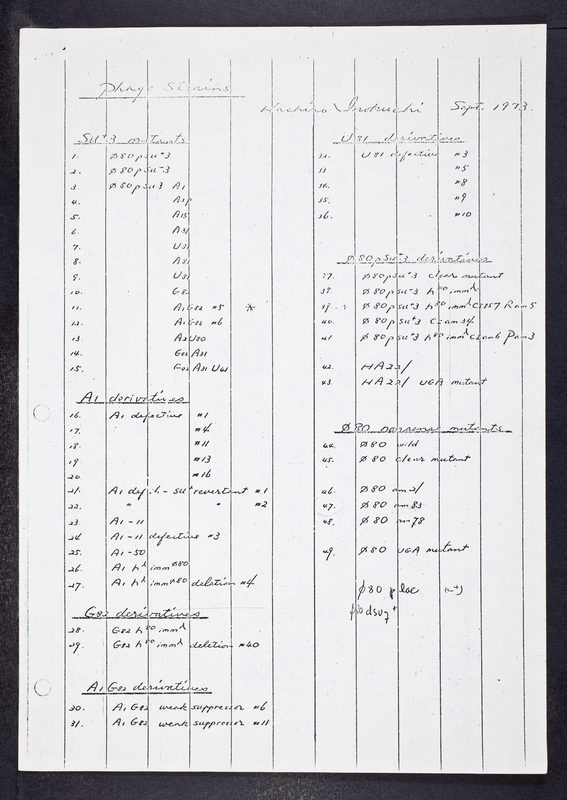 Phage Strains
Hachiro Inokuchi Sept. 1973.
SU+3 mutants
1. Ø80pSU+3
2. Ø80pSU-3
3. Ø80pSU3 A1
4. A2p
5. A15
6. A31
7. U31
8. A81
9. U81
10. G82
11. A1G82 #5 *
12. A1G82 #6
13. A2U80
14. G82 A31
15. G82 A31 U41
A1 derivatives
16. A1 defective #1
17. #4
18. #11
19 #13
20. #16
21. A1 def.h- SU+ revertant #1
22. " " #2
23. A1-11
24 A1-11 defective #3
25. A1-50
26. A1 hλ imm Ø80
27. A1 hλ imm Ø80 deletion #4
G82 derivatives
28. G82 h80 immλ
29. G82 h80 immλ deletion #40
A1G82 derivatives
30. A1G82 weak suppressor #6
31. A1G82 weak suppressor #11
U81 derivatives
32. U81 defective #3
33 #5
34. #8
35. #9
36. #10
Ø80pSU+3 derivatives
37. Ø80pSU+3 clear mutant
38. Ø80pSU+3 h80 immλ
39. Ø80pSU+3 h80 immλ CI857 Ram5
40. Ø80pSU+3 CIam34
41 Ø80pSU+3 h80 immλ CIam6 Pam3
42. HA221
43. HA221 UGA mutant
Ø80 nonsense mutants
44. Ø80 wild
45. Ø80 clear mutant
46. Ø80 am21
47. Ø80 am83
48. Ø80 am78
49. Ø80 UGA mutant
Ø80 p lac (i-+)
Ø80dsu7+